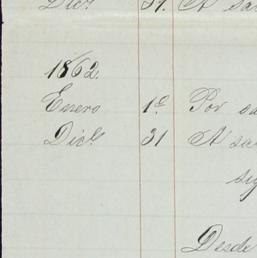 Dic.e 31. A sa
1862.
Enero 1.º Por sa
Dic.e 31 A sa
sig
Desde